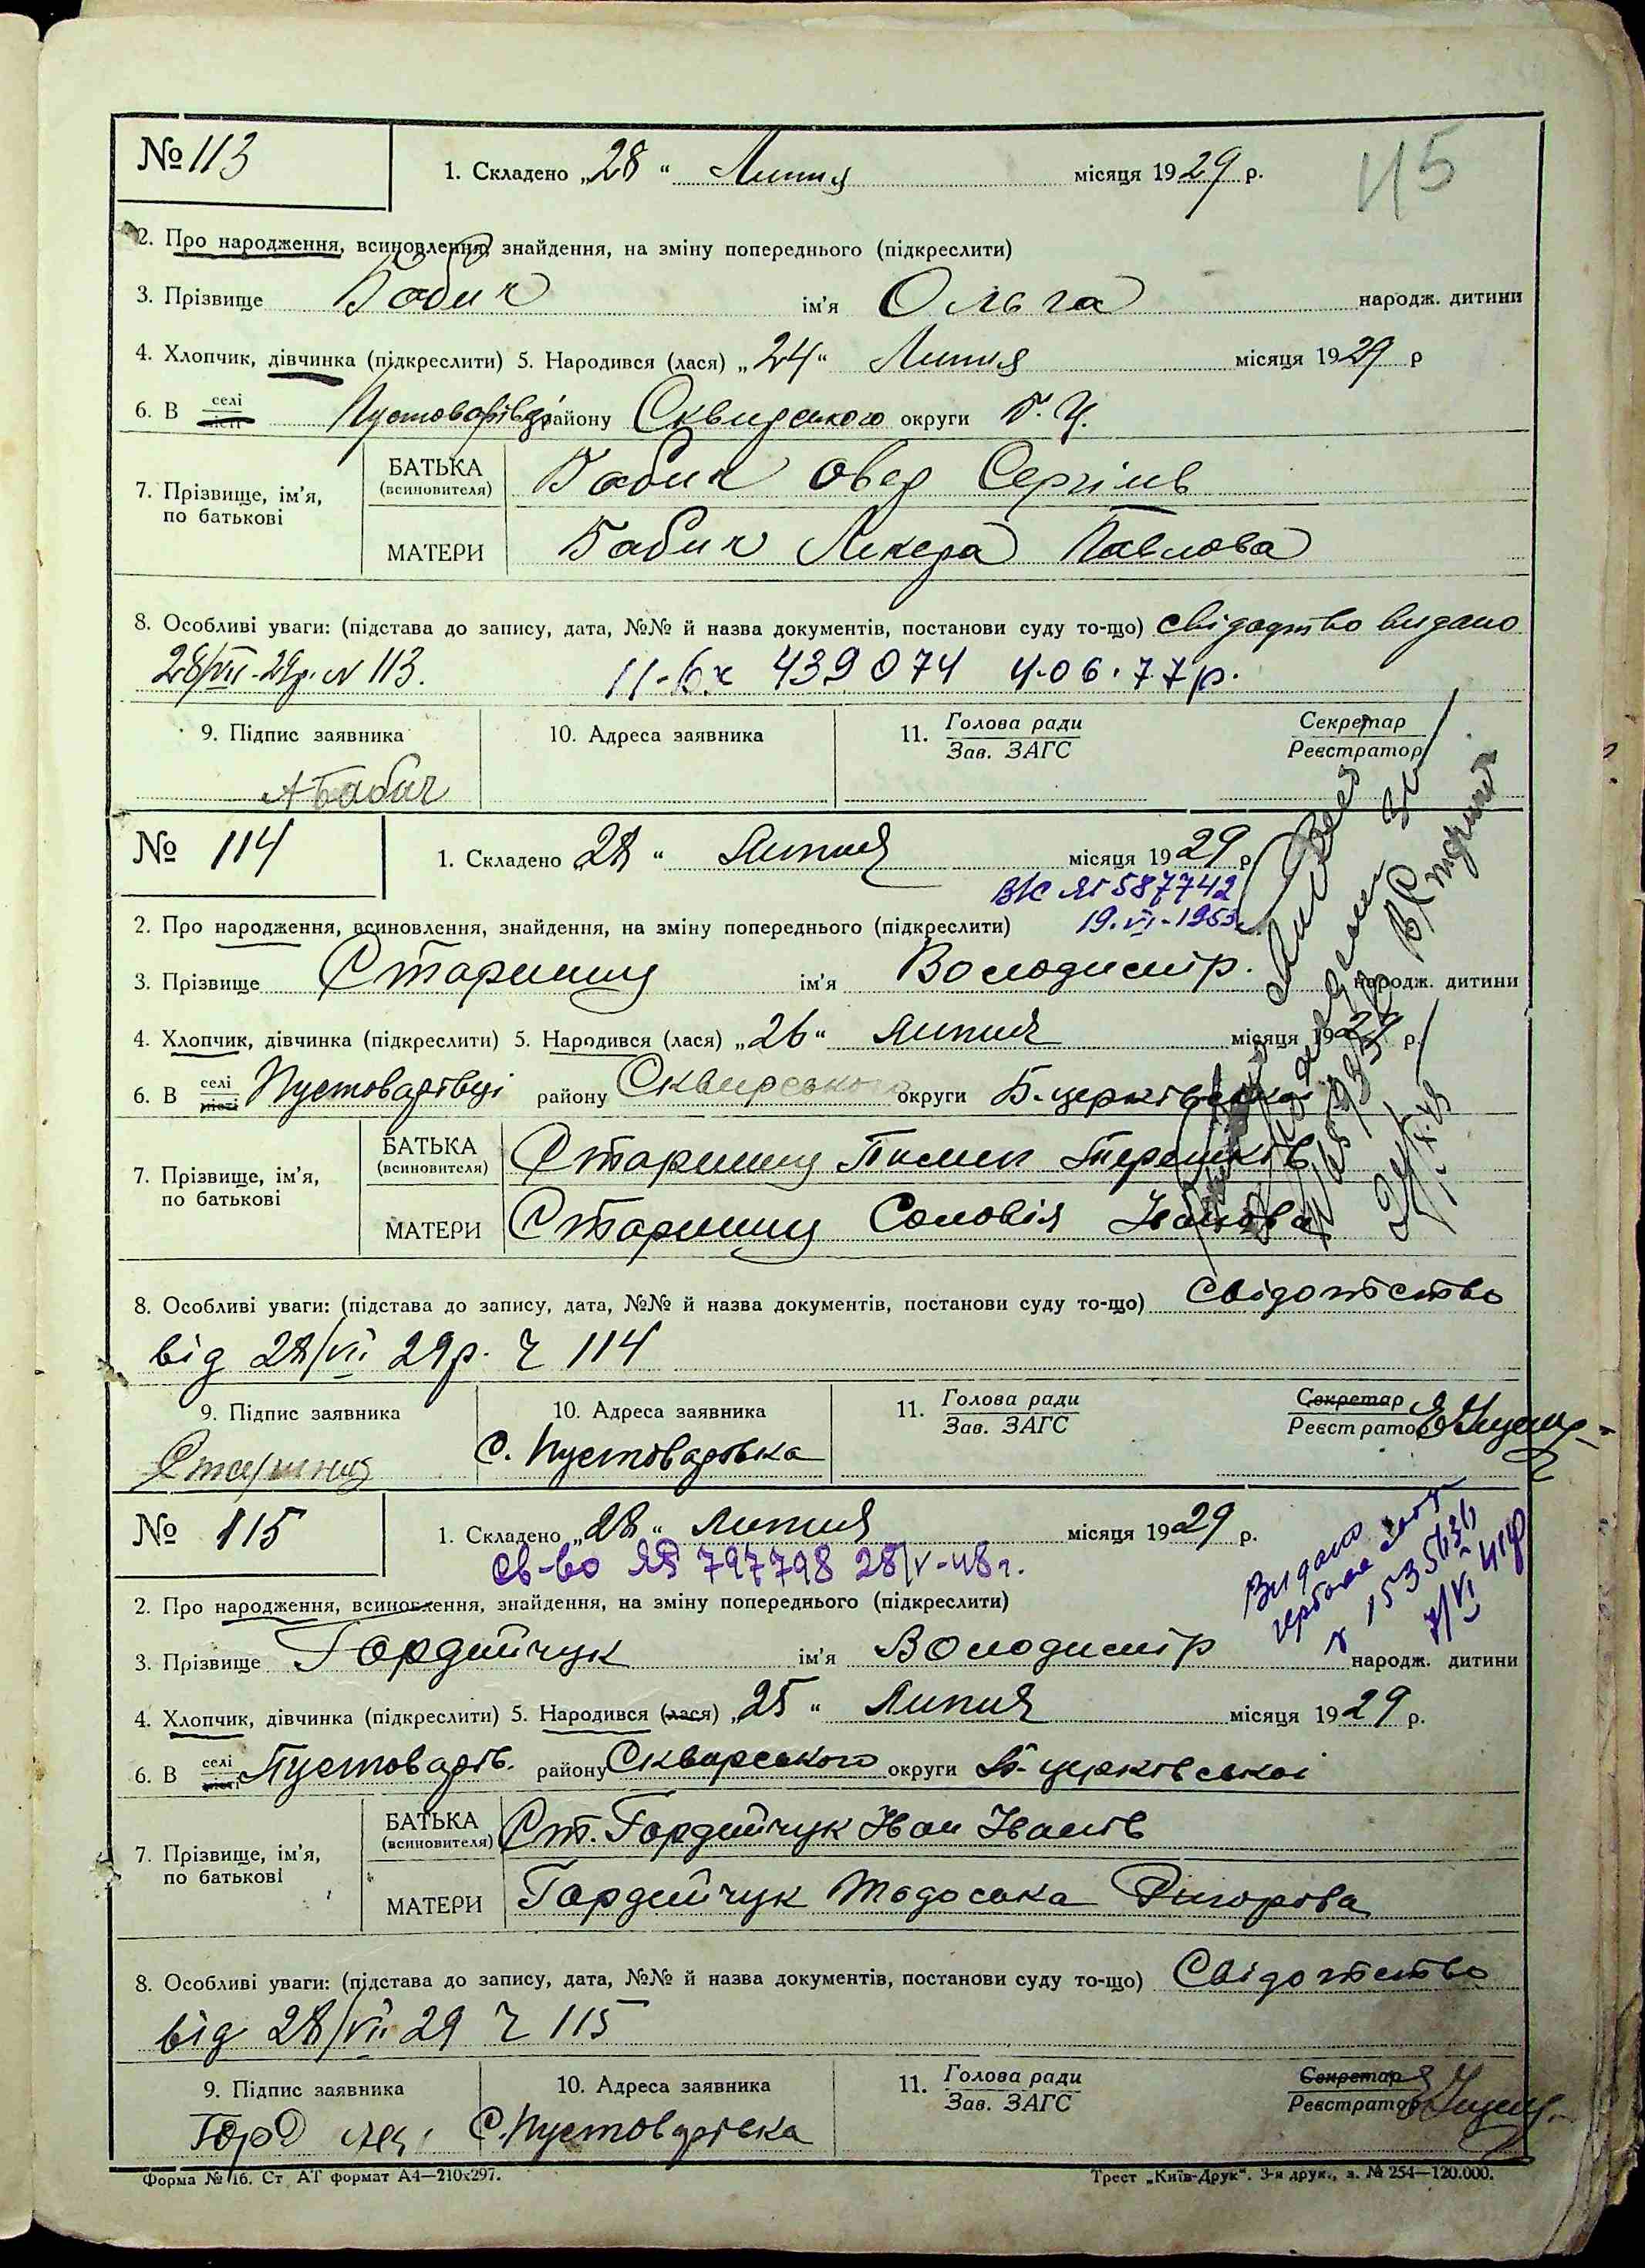 45
№ 113
1. Складено „28“ Липня місяця 1929 р.
2. Про народження, всиновлення, знайдення, на зміну попереднього (підкреслити)
3. Прізвище Бабич ім'я Ольга народж. дитини
4. Хлопчик, дівчинка (підкреслити) 5. Народився (лася) „24“ Липня місяця 1929 р
6. В селі місті Пустоварівці району Сквирського округи Б. Ц.
7. Прізвище, ім'я, по батькові
БАТЬКА (всиновителя) Бабич Овер Сергіїв
МАТЕРИ Бабич Лікера Павлова
8. Особливі уваги: (підстава до запису, дата, №№ й назва документів, постанови суду то-що) свідоцтво видано
28/VII-29р. N 113. 439074 4.06.77р.
9. Підпис заявника 10. Адреса заявника 11. Голова ради Зав. ЗАГС Секретар Реєстратор
А Бабич
№ 114
1. Складено „28“ Липня місяця 1929 р.
587742
19.VI-1953
2. Про народження, всиновлення, знайдення, на зміну попереднього (підкреслити)
3. Прізвище Старишиц ім'я Володимір. народж. дитини
4. Хлопчик, дівчинка (підкреслити) 5. Народився (лася) „26“ Липня місяця 1929 р.
6. В селі місті Пустоварівці району Сквирського округи Б-церківської
7. Прізвище, ім'я, по батькові
БАТЬКА (всиновителя) Пимен Терешків
МАТЕРИ Соловія Іванова
8. Особливі уваги: (підстава до запису, дата, №№ й назва документів, постанови суду то-що) Свідотство
від 28/VII 29р. ч 114
9. Підпис заявника 10. Адреса заявника 11. Голова ради Зав. ЗАГС Секретар Реєстратор
с. Пустоварівка
№ 115
1. Складено „28“ Липня місяця 1929 р.
св-во ЯБ 797798 28/V-48г.
Видано
2. Про народження, всиновлення, знайдення, на зміну попереднього (підкреслити)
3. Прізвище Гордийчук ім'я Володимір народж. дитини
4. Хлопчик, дівчинка (підкреслити) 5. Народився (лася) „25“ Липня місяця 1929 р.
6. В селі місті Пустоварів. району Сквирського округи Б-церківської
7. Прізвище, ім'я, по батькові
БАТЬКА (всиновителя) Ст. Гордийчук Іван Іванів
МАТЕРИ Гордийчук Тодоська Григорова
8. Особливі уваги: (підстава до запису, дата, №№ й назва документів, постанови суду то-що) Свідотство
від 28/VII 29 ч 115
9. Підпис заявника 10. Адреса заявника 11. Голова ради Зав. ЗАГС Секретар Реєстратор
с. Пустоварівка
Форма № 16. Ст АТ формат А4—210х297.
Трест „Київ-Друк“. 3-я друк., з. № 254—120.000.